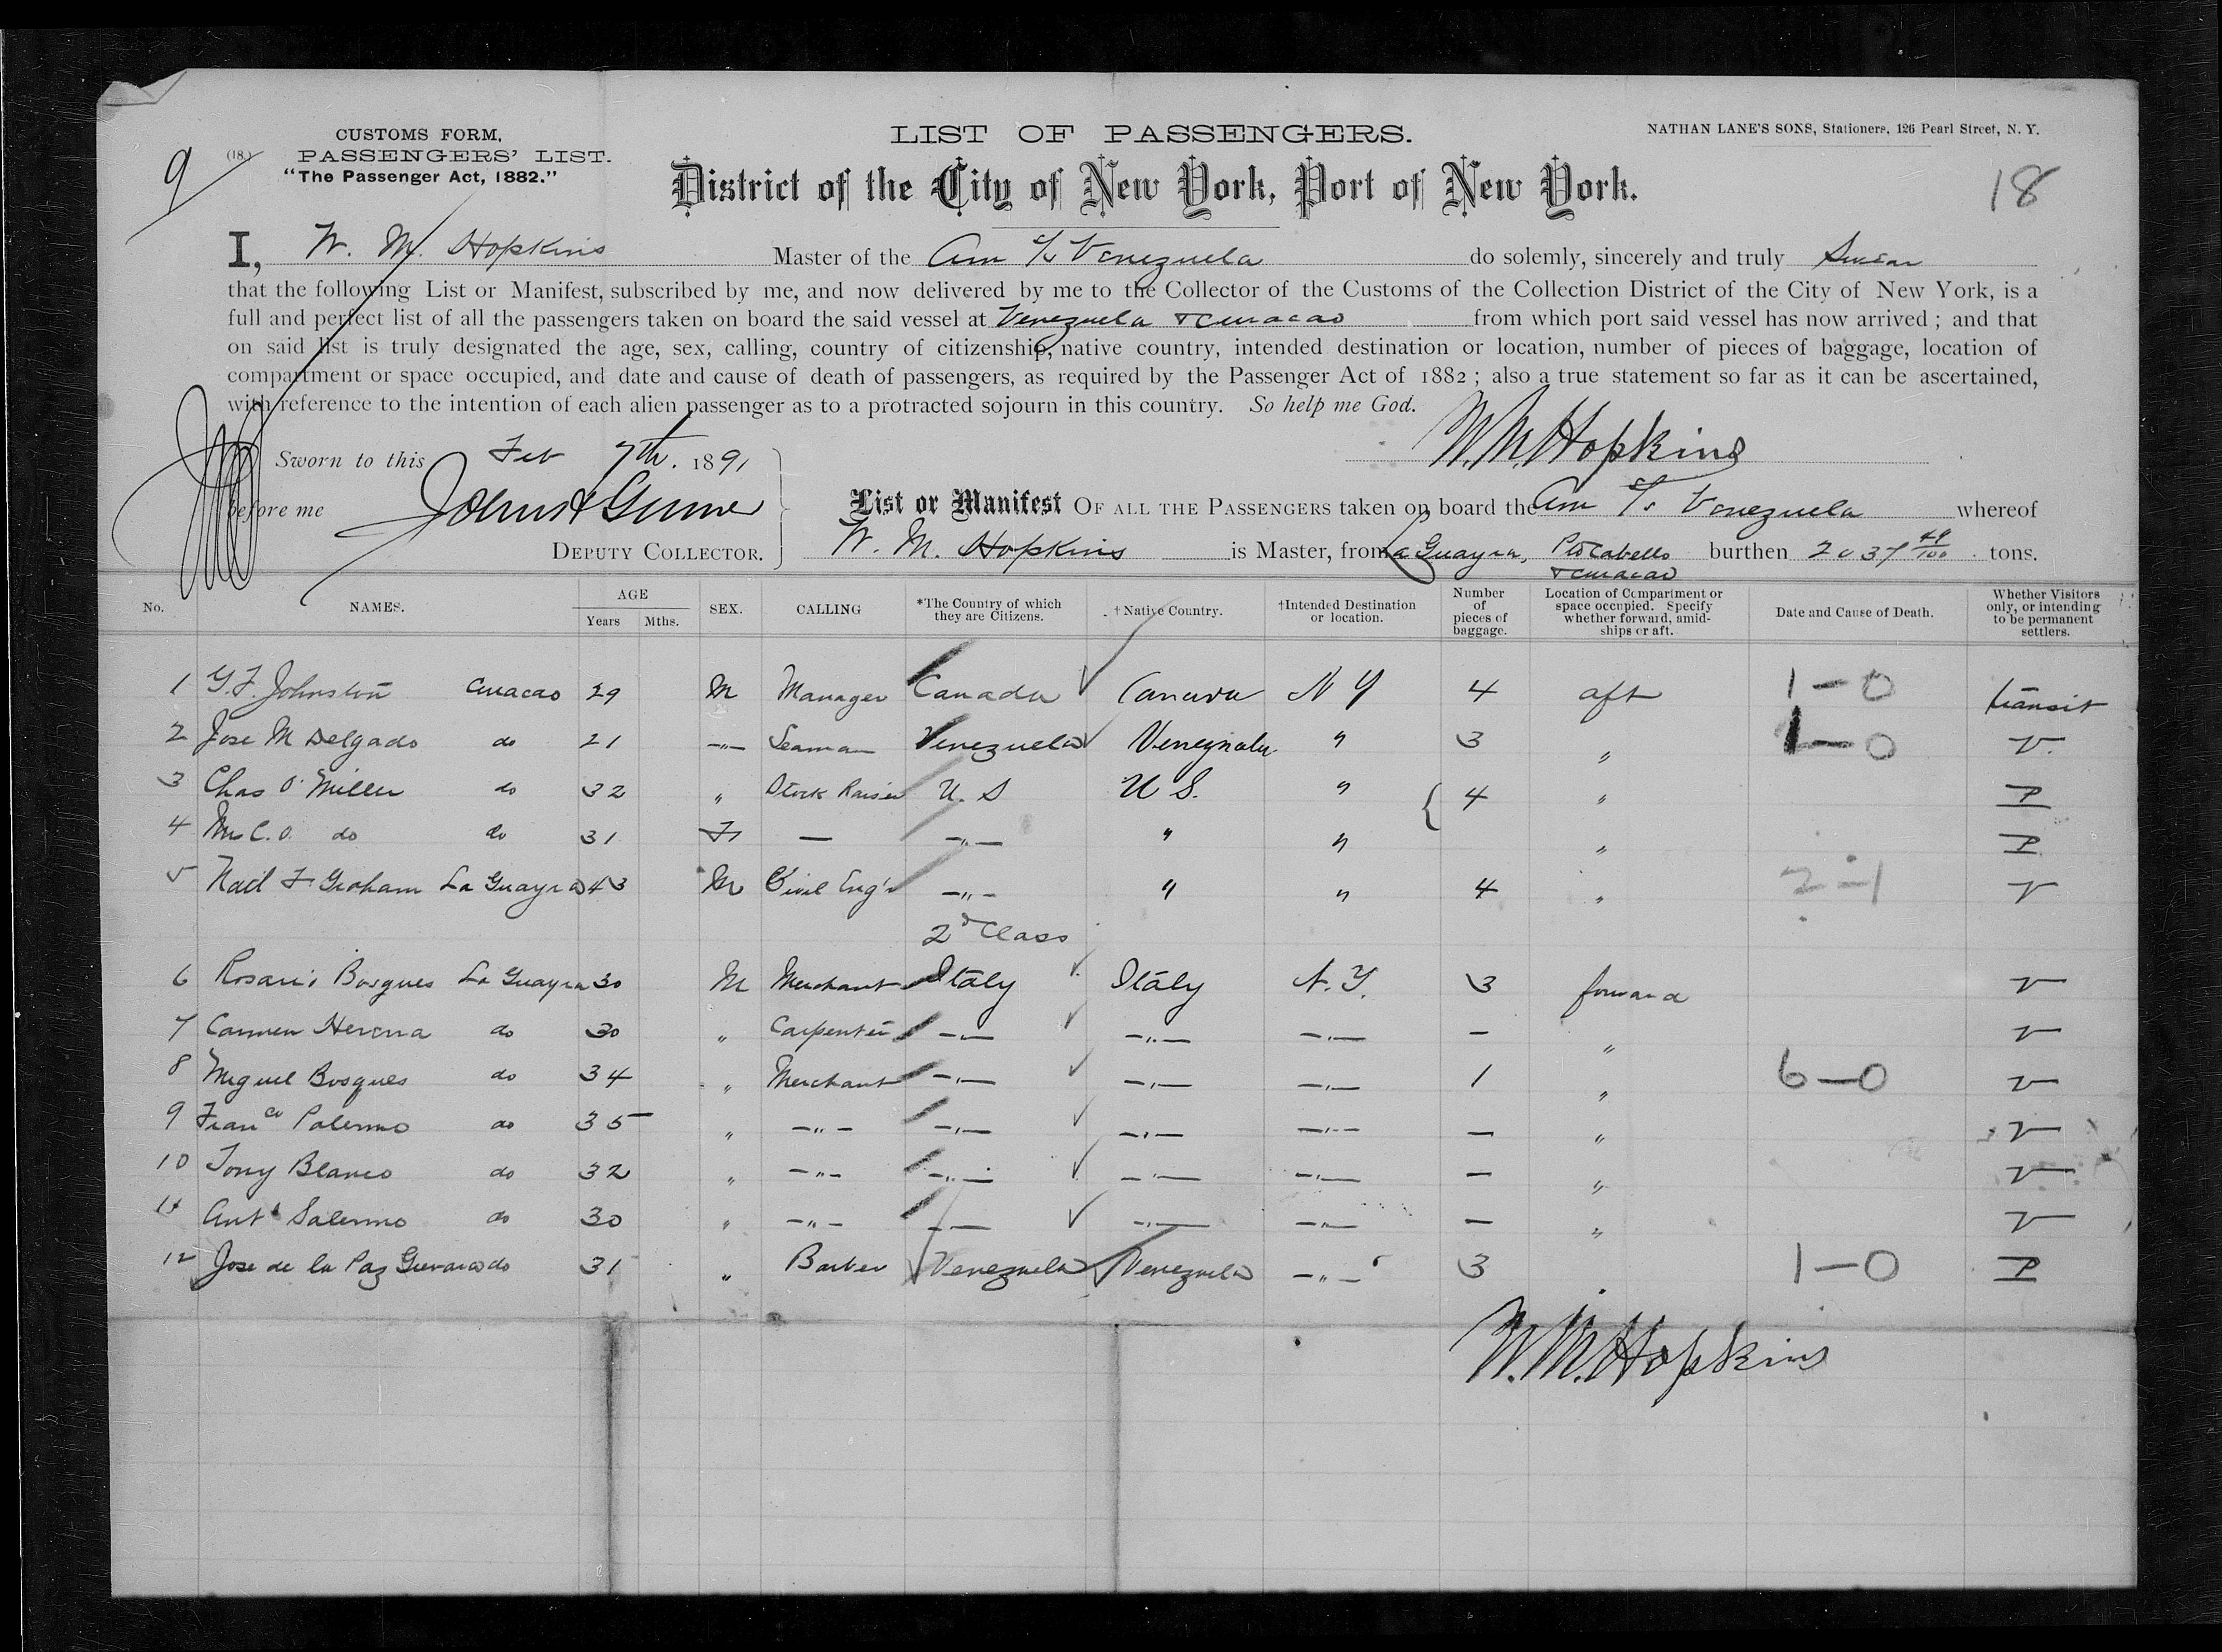 9
(18.)
CUSTOMS FORM,
PASSENGERS' LIST.
"The Passenger Act, 1882."
LIST OF PASSENGERS.
NATHAN LANE'S SONS, Stationers, 126 Pearl Street, N. Y.
District of the City of New York, Port of New York.
18
I, W. M. Hopkins Master of the Am S/s Venezuela do solemly, sincerely and truly Swear
that the following List or Manifest, subscribed by me, and now delivered by me to the Collector of the Customs of the Collection District of the City of New York, is a
full and perfect list of all the passengers taken on board the said vessel at Venezuela & Curacao from which port said vessel has now arrived ; and that
on said list is truly designated the age, sex, calling, country of citizenship, native country, intended destination or location, number of pieces of baggage, location of
compartment or space occupied, and date and cause of death of passengers, as required by the Passenger Act of 1882 ; also a true statement so far as it can be ascertained,
with reference to the intention of each alien passenger as to a protracted sojourn in this country. So help me God.
W. M. Hopkins
Sworn to this Feb 7th. 1891
before me
DEPUTY COLLECTOR.
List or Manifest OF ALL THE PASSENGERS taken on board the Am S/s Venezuela whereof
W. M. Hopkins is Master, from La Guayra, Pto Cabello & Curacao burthen 2037 49/100 tons.
No. NAMES. AGE Years Mths. SEX. CALLING *The Country of which they are Citizens. † Native Country. †Intended Destination or location. Number of pieces of baggage. Location of Compartment or space occupied. Specify whether forward, amidships or aft. Date and Cause of Death. Whether Visitors only, or intending to be permanent settlers.
1 G. F. Johnston Curacao 29 M Manager Canada Canada N Y 4 aft 1–0 transit
2 Jose M Delgado do 21 –"– Seaman Venezuela Venezuela " 3 " 1–0 V.
3 Chas O. Miller do 32 " Stock Raiser U. S U S. " { 4 " P
4 Mrs C. O. do do 31 F — –"– " " " P
5 Neil F Graham La Guayra 43 M Civil Eng'r –"– " " 4 " 2–1 V
2d Class
6 Rosario Bosques La Guayra 30 M Merchant Italy Italy N. Y. 3 forward V
7 Carmen Herrra do 30 " Carpenter –"– –"– –"– – " V
8 Miguel Bosques do 34 " Merchant –"– –"– –"– 1 " 6–0 V
9 Franco Palermo do 35 " –"– –"– –"– –"– – " V
10 Tony Blanco do 32 " –"– –"– –"– –"– – " V
11 Anto Salermo do 30 " –"– –"– –"– –"– – " V
12 Jose de la Paz Guevara do 31 " Barber Venezuela Venezuela –"– 3 1–0 P
W. M. Hopkins